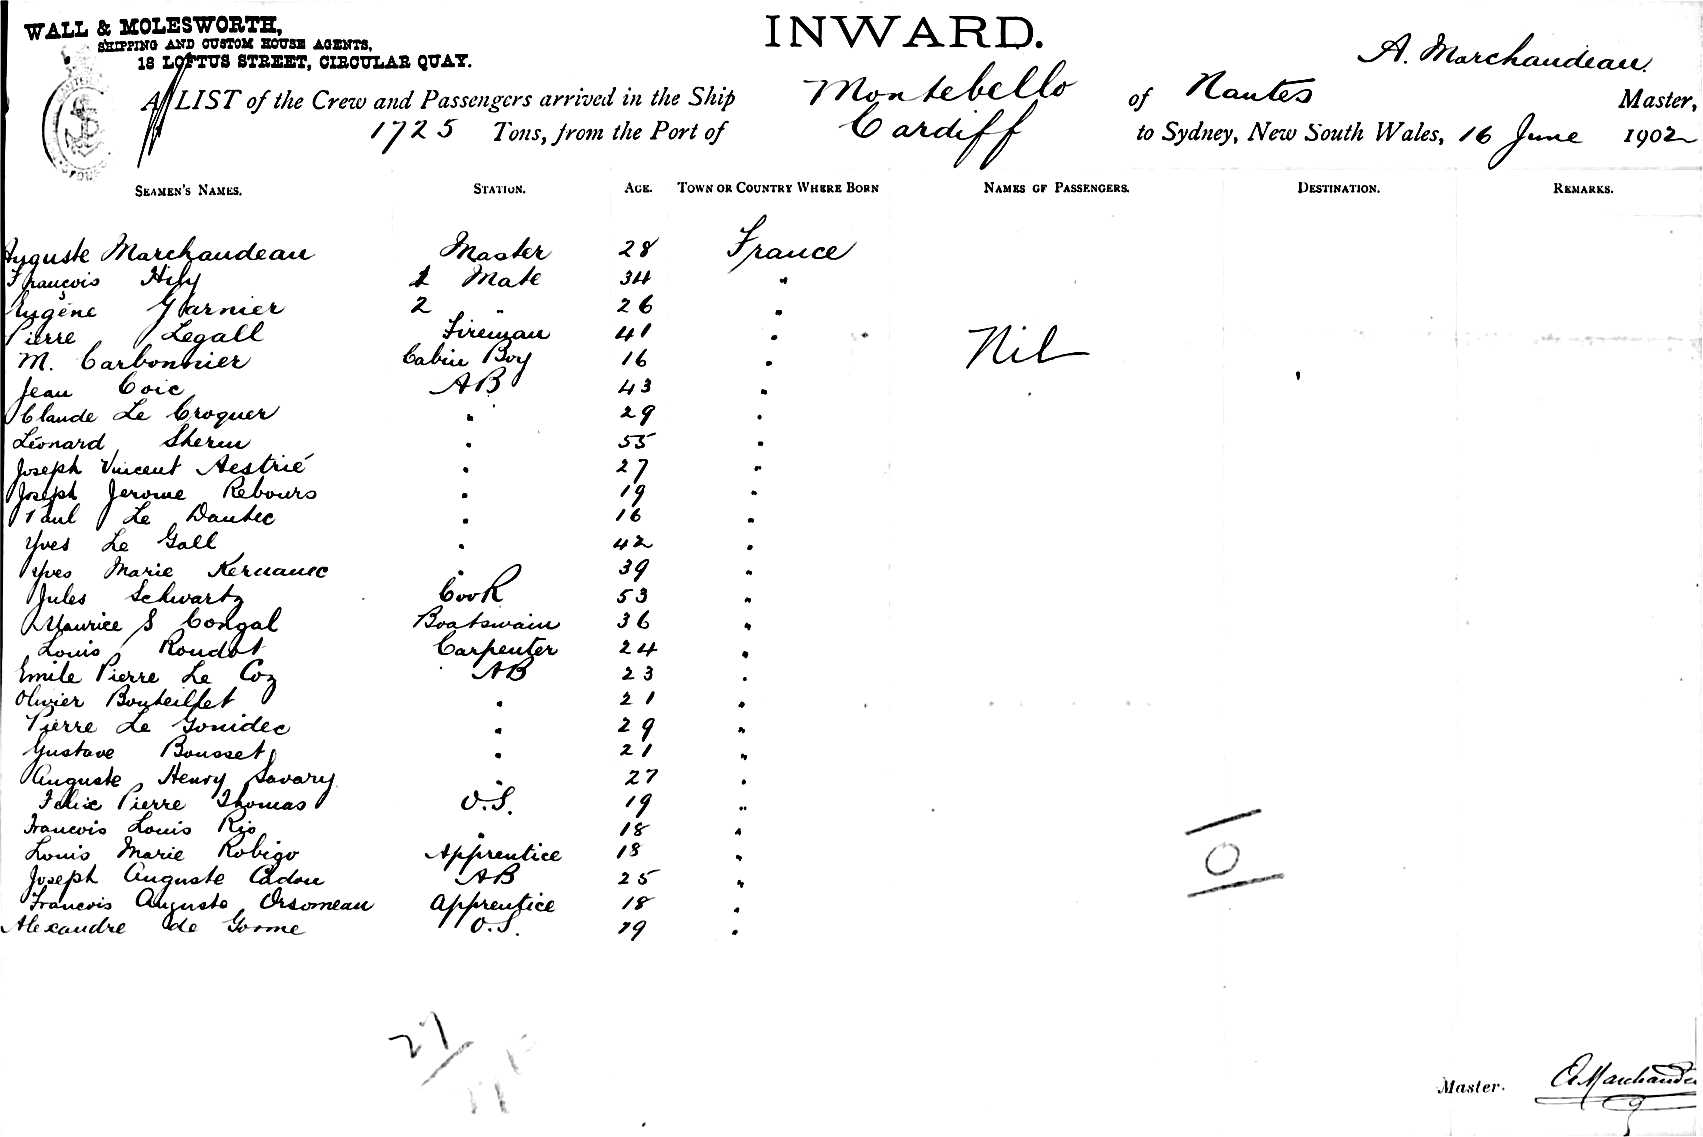 WALL & MOLESWORTH,
SHIPPING AND CUSTOM HOUSE AGENTS,
18 LOFTUS STREET, CIRCULAR QUAY.
INWARD.
A. Marchaudeau.
A LIST of the Crew and Passengers arrived in the Ship Montebello of Nantes Master,
1725 Tons, from the Port of Cardiff to Sydney, New South Wales, 16 June 1902
SEAMEN'S NAMES. STATION. AGE. TOWN OR COUNTRY WHERE BORN NAMES OF PASSENGERS. DESTINATION. REMARKS.
Auguste Marchaudeau Master 28 France
François Hily 1 Mate 34 "
Eugène Garnier 2 " 26 "
Pierre Legall Fireman 41 "
Nil
M. Carbonnier Cabin Boy 16 "
Jean Coic AB 43 "
Claude Le Croquer " 29 "
Léonard Sherin " 55 "
Joseph Vincent Aestrié " 27 "
Joseph Jerome Rebours " 19 "
Paul Le Dantec " 16 "
Yves Le Gall " 42 "
Yves Marie Kernanec " 39 "
Jules Schwartz Cook 53 "
Maurice S Congal Boatswain 36 "
Louis Roudot Carpenter 24 "
Emile Pierre Le Coz AB 23 "
Olivier Bouteillet " 21 "
Pierre Le Gonidec " 29 "
Gustave Bousset " 21 "
Auguste Henry Savary " 27 "
Felix Pierre Thomas O.S. 19 "
Francois Louis Rio " 18 "
Louis Marie Robigo Apprentice 18 "
0
Joseph Auguste Cadou AB 25 "
Francois Auguste Orsomeau Apprentice 18 "
Alexandre de Goome O.S. 19 "
27
Master. A Marchaudeau